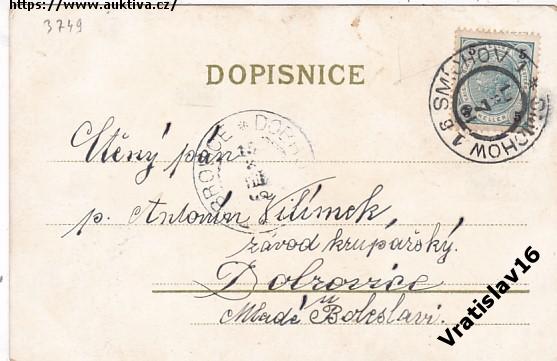 https://www.auktiva.cz/
3749
DOPISNICE
5 5
HELLER
SMICHOW 1 SMÍCHOV 1
DOBROVICE * DOBR
Ctěný pán
p. Antonín Vilímek
závod krupařský.
Dobrovice
u
Mladé Boleslavi.
Vratislav16